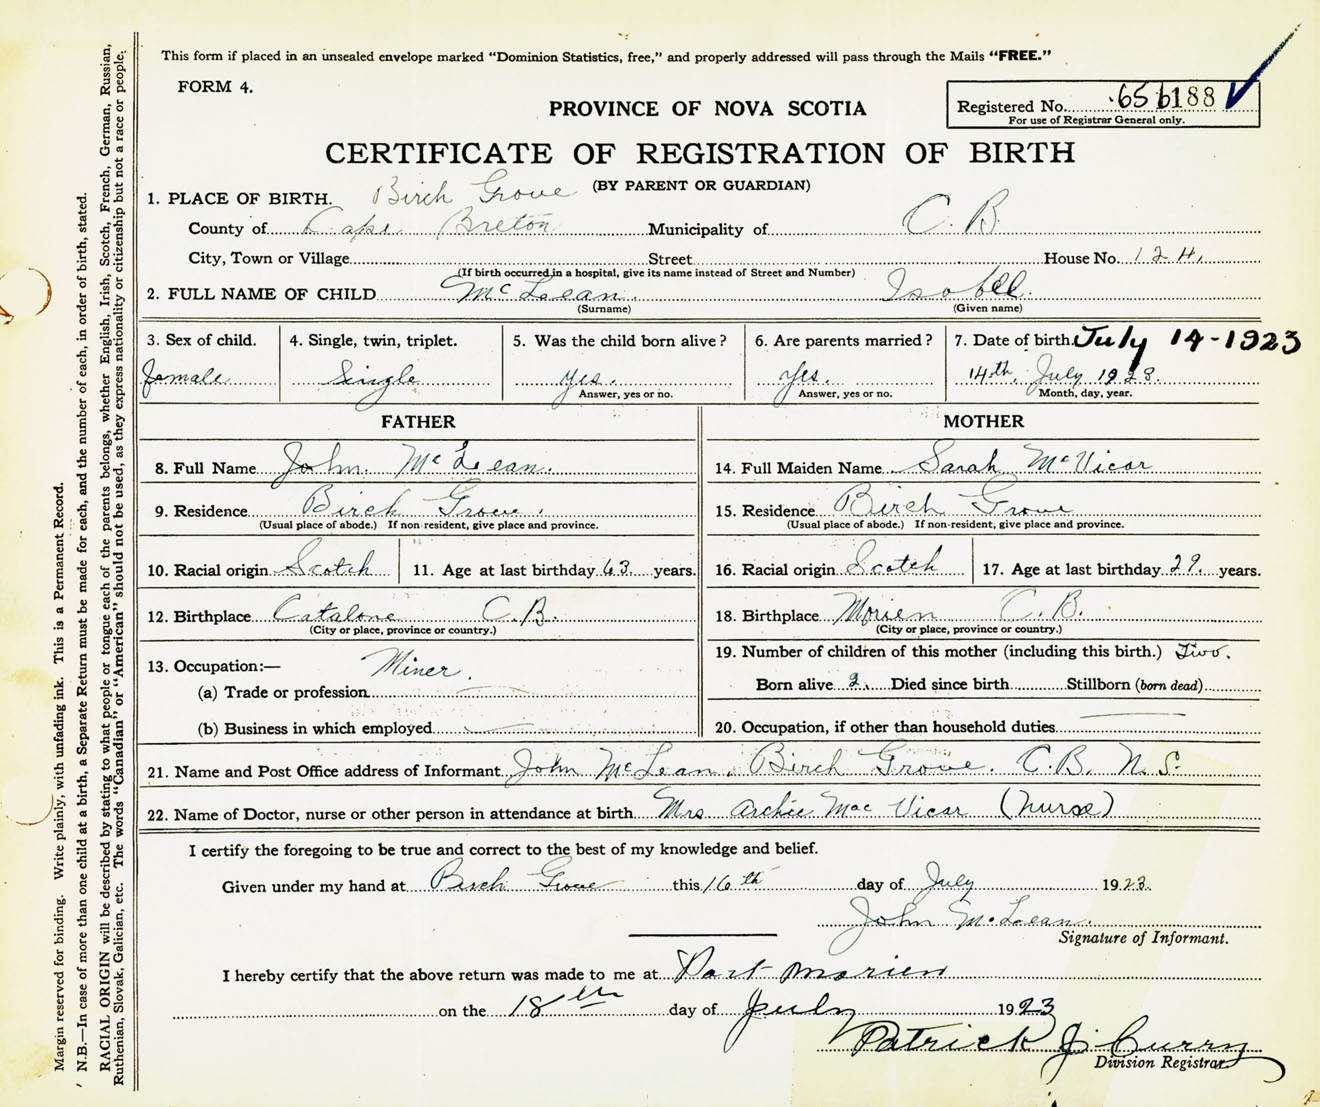 This form if placed in an unsealed envelope marked "Dominion Statistics, free," and properly addressed will pass through the Mails "FREE."
FORM 4.
Registered No. 656188
For use of Registrar General only.
PROVINCE OF NOVA SCOTIA
CERTIFICATE OF REGISTRATION OF BIRTH
(BY PARENT OR GUARDIAN)
1. PLACE OF BIRTH. Birch Grove
County of Cape Breton Municipality of C. B.
City, Town or Village Street House No. 124.
(If birth occurred in a hospital, give its name instead of Street and Number)
2. FULL NAME OF CHILD McLean. Isobell.
(Surname) (Given name)
3. Sex of child. 4. Single, twin, triplet. 5. Was the child born alive? 6. Are parents married? 7. Date of birth. July 14-1923
female Single yes. yes. 14th, July 1923.
Answer, yes or no. Answer, yes or no. Month, day, year.
FATHER MOTHER
8. Full Name John. McLean. 14. Full Maiden Name Sarah McVicar
9. Residence Birch Grove. 15. Residence Birch Grove
(Usual place of abode.) If non-resident, give place and province. (Usual place of abode.) If non-resident, give place and province.
10. Racial origin Scotch 11. Age at last birthday 63. years. 16. Racial origin Scotch 17. Age at last birthday 29. years.
12. Birthplace Catalone C.B. 18. Birthplace Morien C. B.
(City or place, province or country.) (City or place, province or country.)
13. Occupation:— Miner. 19. Number of children of this mother (including this birth.) Two.
(a) Trade or profession Born alive 2. Died since birth Stillborn (born dead)
(b) Business in which employed 20. Occupation, if other than household duties
21. Name and Post Office address of Informant John McLean. Birch Grove. C.B. N.S.
22. Name of Doctor, nurse or other person in attendance at birth Mrs Archie Mac Vicar (nurse)
I certify the foregoing to be true and correct to the best of my knowledge and belief.
Given under my hand at Birch Grove this 16th day of July 1923.
John McLean.
Signature of Informant.
I hereby certify that the above return was made to me at Port Morien
on the 18th day of July 1923
Patrick J. Curry
Division Registrar.
Margin reserved for binding. Write plainly, with unfading ink. This is a Permanent Record.
N.B.—In case of more than one child at a birth, a Separate Return must be made for each, and the number of each, in order of birth, stated.
RACIAL ORIGIN will be described by stating to what people or tongue each of the parents belongs, whether English, Irish, Scotch, French, German, Russian,
Ruthenian, Slovak, Galician, etc. The words "Canadian" or "American" should not be used, as they express nationality or citizenship but not a race or people.